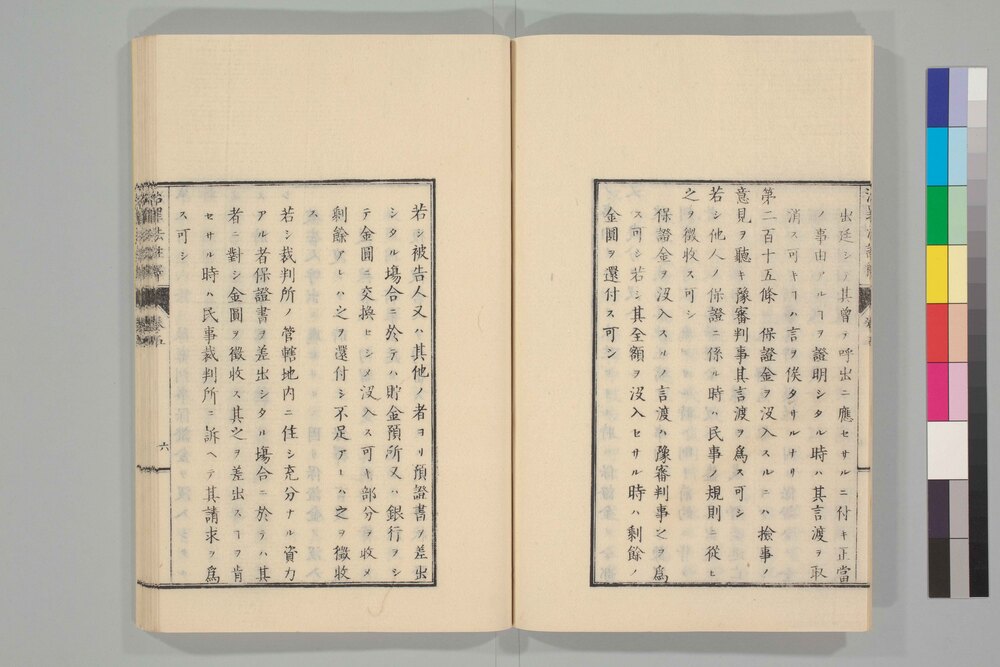 出廷シテ其曽テ呼出ニ應セサルニ付キ正當
ノ事由アルヿヲ證明シタル時ハ其言渡ヲ取
消ス可キヿハ言ヲ俟タサルナリ
第二百十五條 保證金ヲ沒入スルニハ撿事ノ
意見ヲ聽キ豫審判事其言渡ヲ爲ス可シ
若シ他人ノ保證ニ係ル時ハ民事ノ規則ニ從ヒ
之ヲ徴收ス可シ
保證金ヲ沒入スルノ言渡ハ豫審判事之ヲ爲
ス可シ若シ其全額ヲ沒入セサル時ハ剩餘ノ
金圓ヲ還付ス可シ
若シ被告人又ハ其他ノ者ヨリ預證書ヲ差出
シタル塲合ニ於テハ貯金預所又ハ銀行ヲシ
テ金圓ニ交換セシメ沒入ス可キ部分ヲ收メ
剩餘アレハ之ヲ還付シ不足アレハ之ヲ徴收
ス
若シ裁判所ノ管轄地内ニ住シ充分ナル資力
アル者保證書ヲ差出シタル塲合ニ於テハ其
者ニ對シ金圓ヲ徴收ス其之ヲ差出スヿヲ肯
セサル時ハ民事裁判所ニ訴ヘテ其請求ヲ爲
ス可シ
六